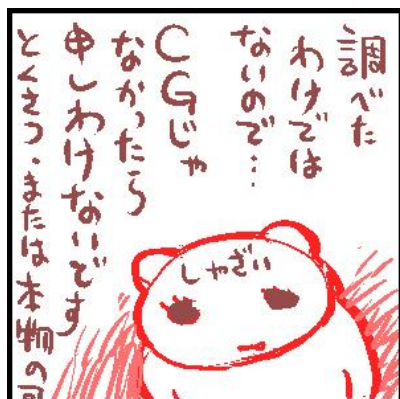 調べた
わけでは
ないので…
CGじゃ
なかったら
申しわけないです
とくさつ・または本物の可
しゃざい